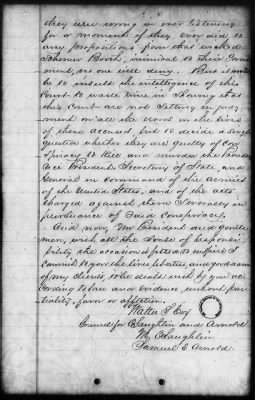 they were wrong in ever listening
for a moment, if they ever did, to
any propositions from that wicked
schemer Booth, inimical to their Govern-
ment, no one will deny. But it would
be to insult the intelligence of this
Court to waste time in showing that
this Court are not sitting in judg-
ment on all the words in the lives
of these accused, but to decide a single
question whether they are guilty of Con-
spiracy to kill and murder the President
Vice President, Secretary of State, and
General in command of the armies
of the United States, and of the acts
charged against them severally in
pursuance of said conspiracy.
And now, Mr President and gentle-
men, with all the sense of responsi-
bility the occasion is fitted to inspire I
commit to you the lives, liberties, and good name
of my clients, to be dealt with by you ac-
cording to law and evidence without par-
tiality, favor or affection.
Walter S Cox
Counsel for O'Laughlin and Arnold
M. O'Laughlin
Samuel B Arnold